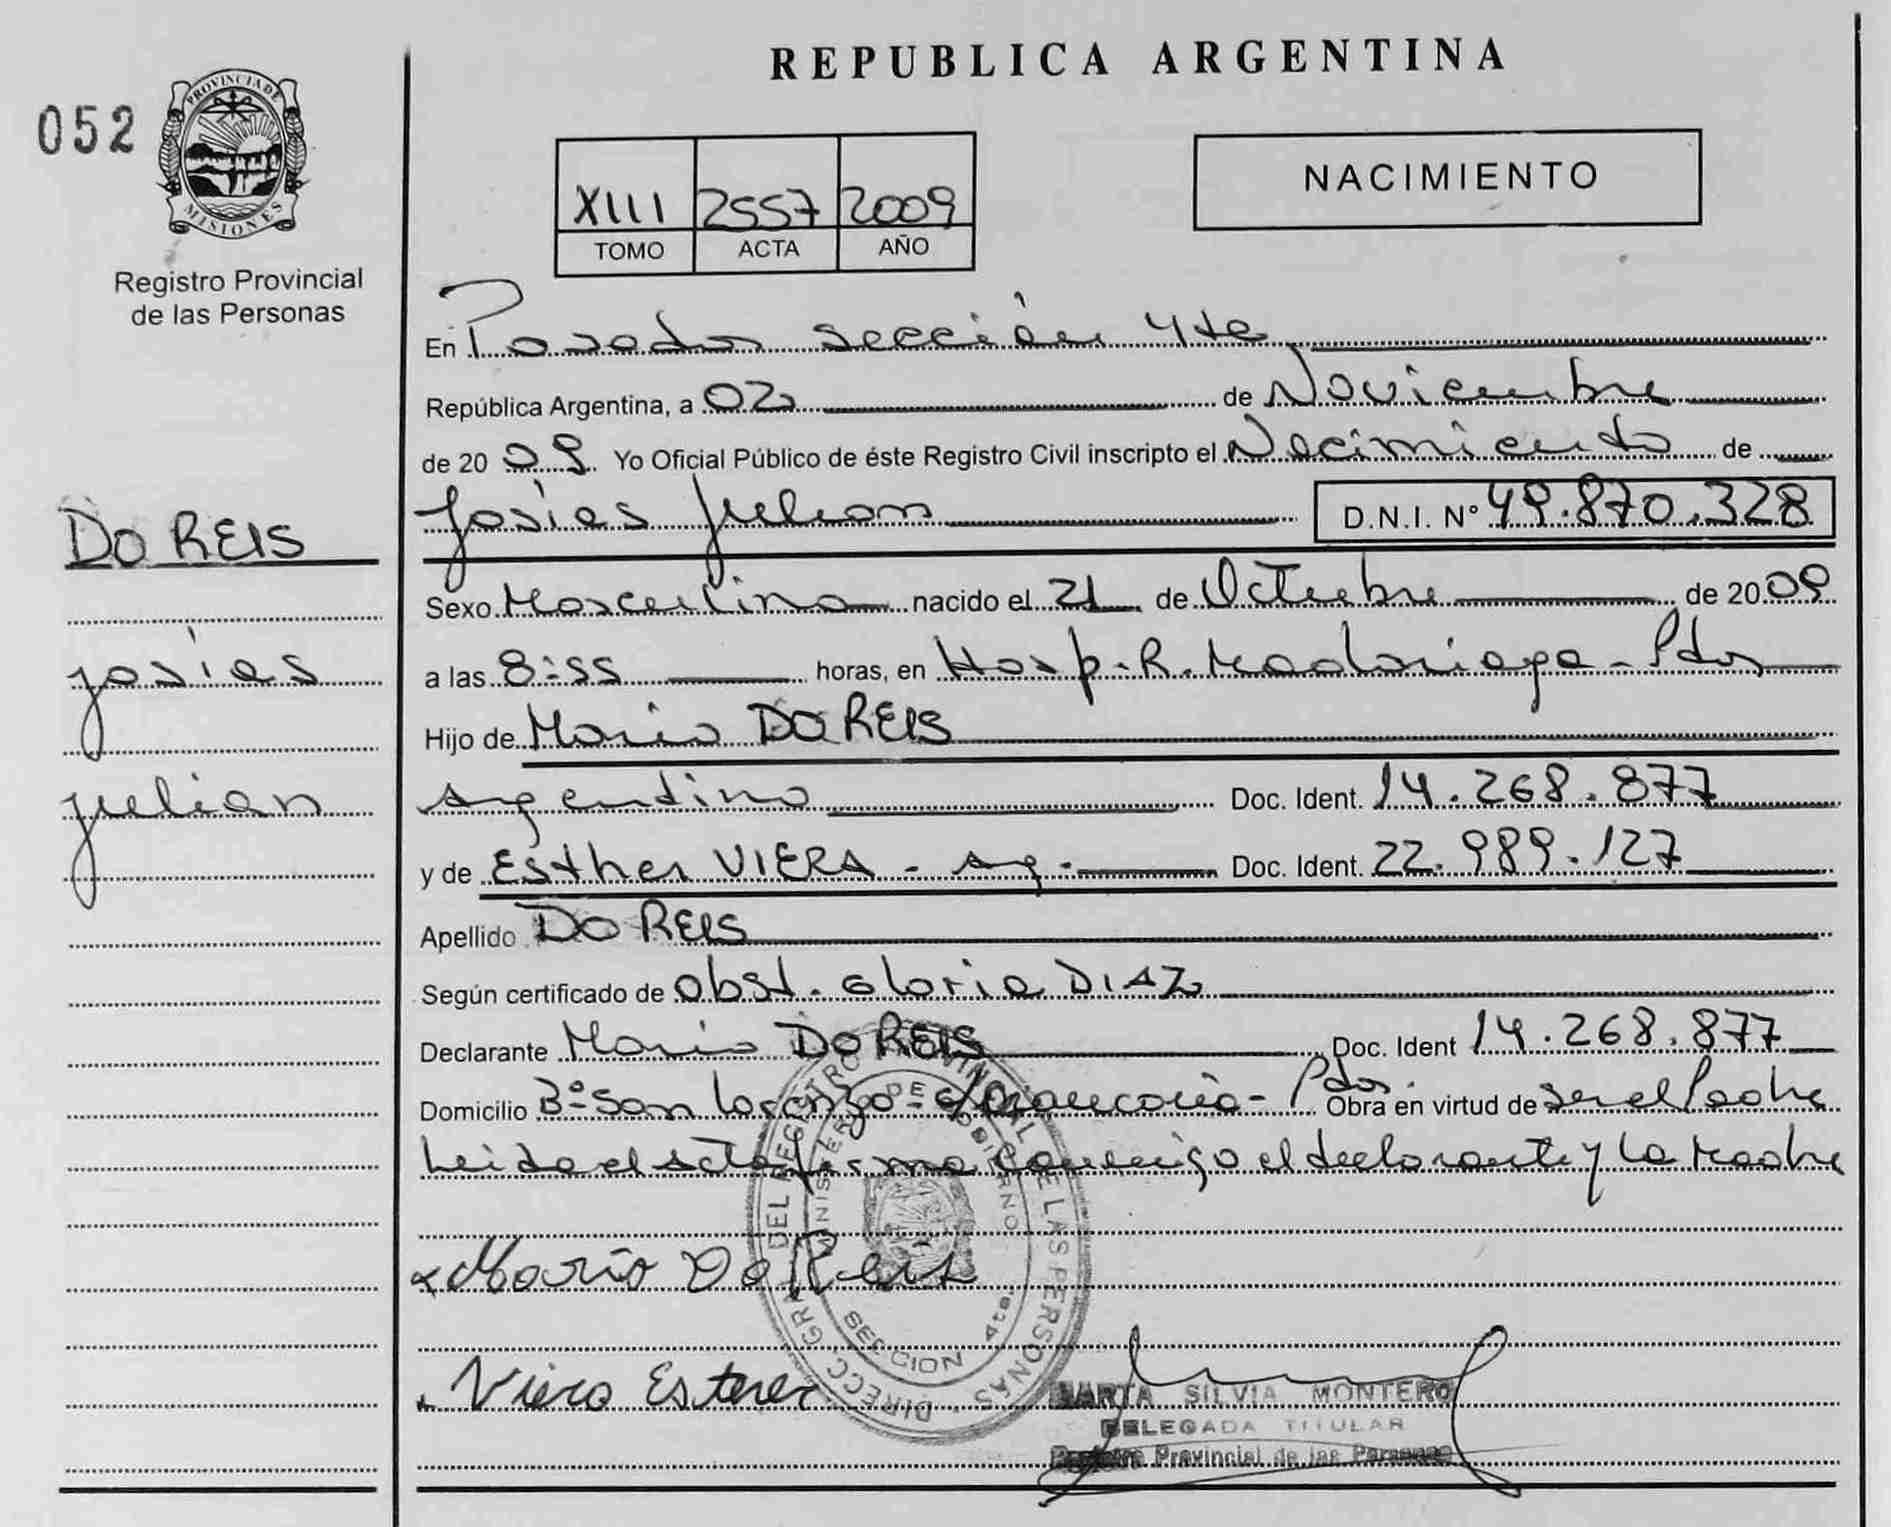 REPUBLICA ARGENTINA
052
PROVINCIA DE
MISIONES
Registro Provincial
de las Personas
XIII 2557 2009
TOMO ACTA AÑO
NACIMIENTO
En Posadas sección 4ta
República Argentina, a 02 de Noviembre
de 2009 Yo Oficial Público de éste Registro Civil inscripto el Nacimiento de
Josías Julian D.N.I. Nº 49.870.328
DO REIS
Josías
Julian
Sexo Masculino nacido el 21 de Octubre de 2009
a las 8:55 horas, en Hosp. R. Madariaga - Pdas
Hijo de Mario DO REIS
argentino Doc. Ident. 14.268.877
y de Esther VIERA - arg. Doc. Ident. 22.989.127
Apellido DO REIS
Según certificado de obst. Gloria DIAZ
Declarante Mario DO REIS Doc. Ident 14.268.877
Domicilio Bº San Lorenzo - Pdas. Obra en virtud de ser el Padre
Leida el acta firma conmigo el declarante y la Madre
Mario Do Reis
Viera Ester
DIRECC. GRAL. DEL REGISTRO PROVINCIAL DE LAS PERSONAS
MINISTERIO DE GOBIERNO
SECCION 4ta.
MARTA SILVIA MONTERO
DELEGADA TITULAR
Registro Provincial de las Personas